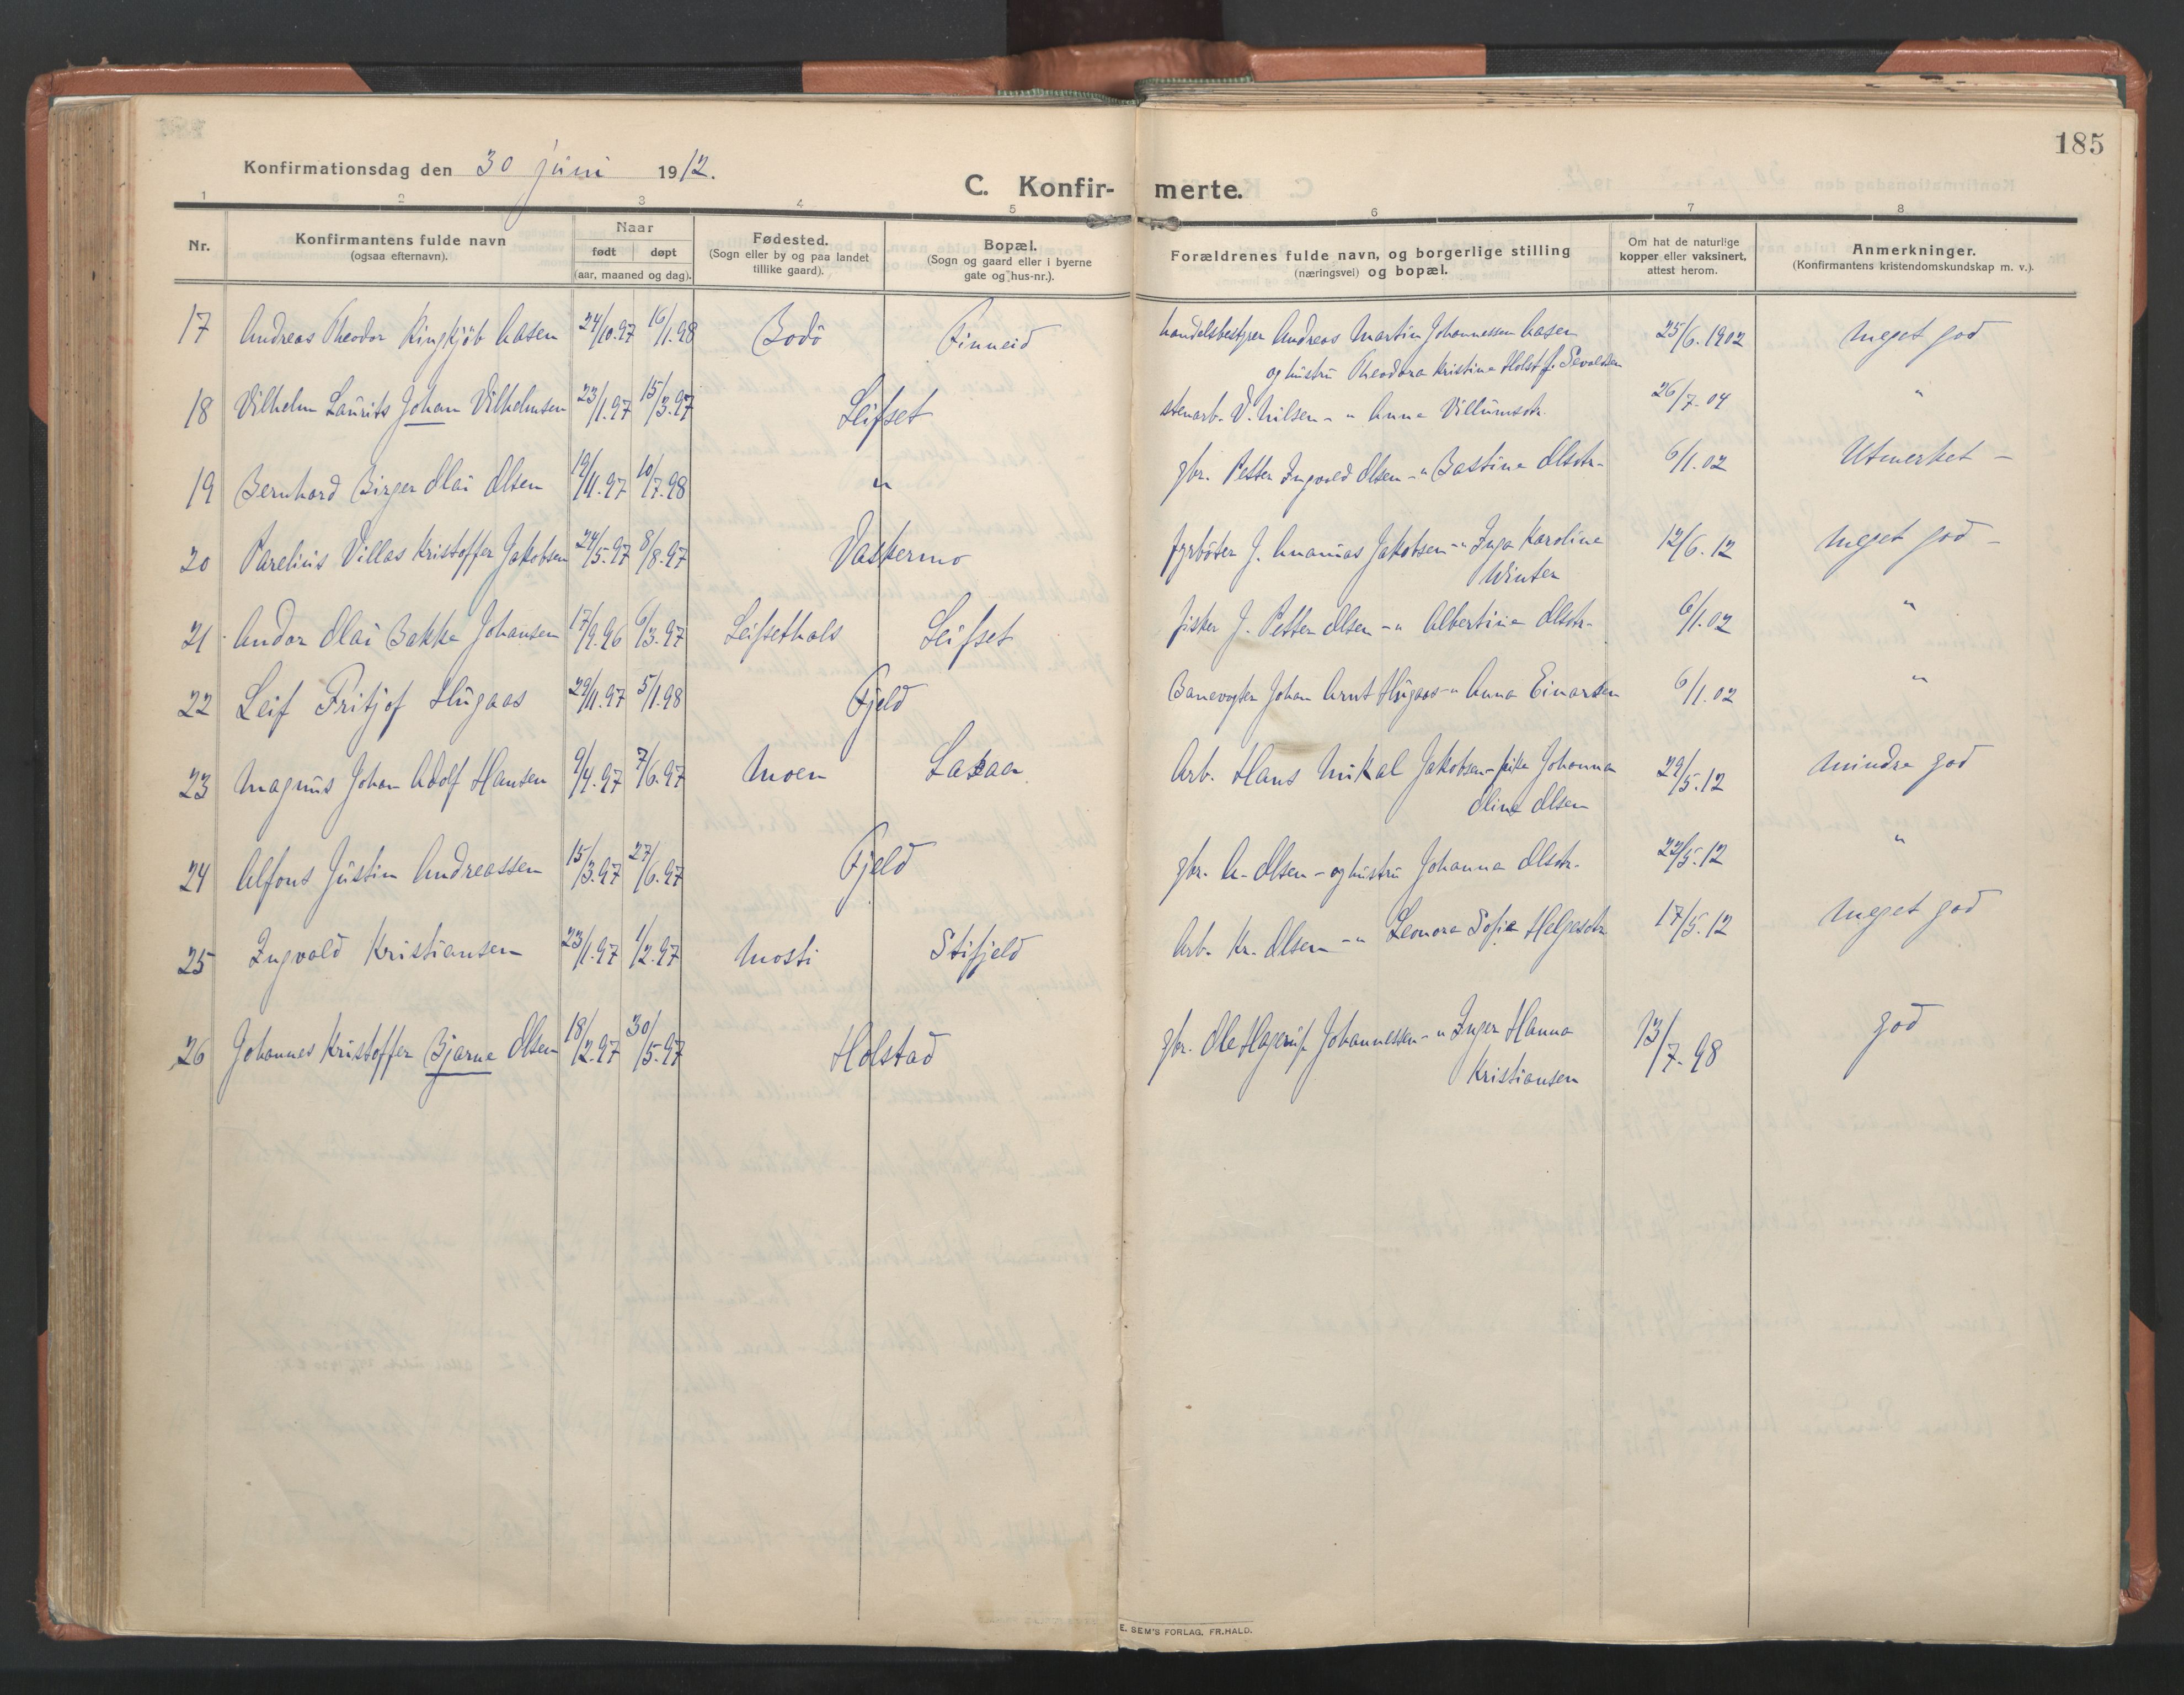 185
Konfirmationsdag den 30 juni 1912.
C. Konfir- merte.
1 2 3 4 5 6 7 8
Nr. Konfirmantens fulde navn (ogsaa efternavn). Naar født døpt (aar, maaned og dag). Fødested. (Sogn eller by og paa landet tillike gaard). Bopæl. (Sogn og gaard eller i byerne gate og hus-nr.). Forældrenes fulde navn, og borgerlige stilling (næringsvei) og bopæl. Om hat de naturlige kopper eller vaksinert, attest herom. Anmerkninger. (Konfirmantens kristendomskundskap m. v.).
17 Andreas Theodor Ringkjöb Aasen 24/10.97 16/1.98 Bodö Finneid handelsbestyrer Andreas Martin Johannessen Aasen 25/6.1902 Meget god
og hustru Theodora Kristine Holst f. Sevaldsen
18 Vilhelm Laurits Johan Vilhelmsen 23/1.97 15/3.97 Leifset stenarb. V. Nilsen - " Anna Villumsdtr. 26/7.04 "
19 Bernhard Birger Olai Olsen 19/11.97 10/7.98 " gbr. Petter Ingvald Olsen - " Bastine Olsdtr. 6/1.02 Utmerket -
20 Parelius Villas Kristoffer Jakobsen 24/5.97 8/8.97 Vaskermo fyrböter J. Ananias Jakobsen - " Inga Karoline 12/6.12 Meget god -
Winter
21 Andor Olai Bakke Johansen 17/9.96 6/3.97 Leifsethals Leifset fisker J. Petter Olsen - " Albertine Olsdtr. 6/1.02 "
22 Leif Fritjof Hugaas 29/11.97 5/1.98 Fjeld Banevogter Johan Arnt Hugaas - " Anna Einarsen 6/1.02 "
23 Magnus Johan Adolf Hansen 9/4.97 7/6.97 Moen Laxaa Arb. Hans Mikal Jakobsen - pike Johanna 29/5.12 Mindre god
Oline Olsen
24 Alfons Justin Andreassen 15/3.97 27/6.97 Fjeld gbr. A. Olsen - og hustru Johanna Olsdtr. 22/5.12 "
25 Ingvald Kristiansen 23/1.97 1/2.97 Mosti Stifjeld Arb. Kr. Olsen - " Leonora Sofie Helgesdtr 17/5.12 Meget god
26 Johannes Kristoffer Bjarne Olsen 18/2.97 30/5.97 Holstad gbr. Ole Hagerup Johannessen - " Inger Hanna 13/7.98 god
Kristiansen
E. SEM'S FORLAG, FR.HALD.